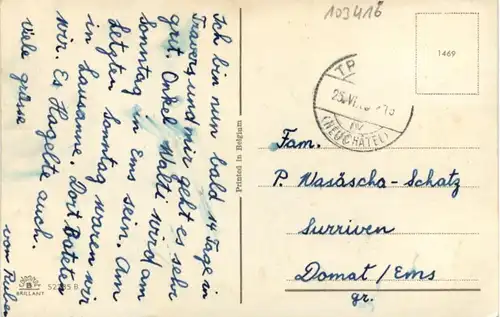 Ich bin nun bald 14 Tage in
Travers und mir geht es sehr
gut. Onkel Walti wird am
Sonntag in Ems sein. Am
Letzten Sonntag waren wir
in Lausanne. Dort Badeten
wir. Es Hagelte auch.
Viele grüsse
von Ruben
BRILLANT
52285 B
Printed in Belgium
103416
1469
TR
25.VI.
(NEUCHÂTEL)
Fam.
P. Wasäscha-Schatz
Surriven
Domat/Ems
gr.